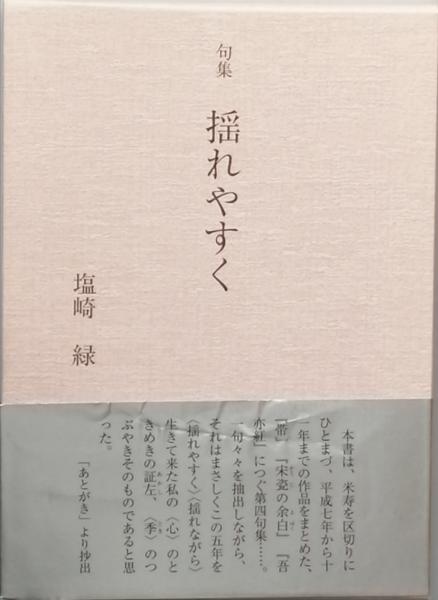 句集
揺れやすく
塩崎 緑
本書は、米寿を区切りに
ひとまづ、平成七年から十
一年までの作品をまとめた、
『帯』『宋瓷の余白』『吾
亦紅』につぐ第四句集……。
一句々々を抽出しながら、
それはまさしくこの五年を
〈揺れやすく〉〈揺れながら〉
生きて来た私の〈心〉のと
きめきの証左、〈季〉のつ
ぶやきそのものであると思
った。
「あとがき」より抄出